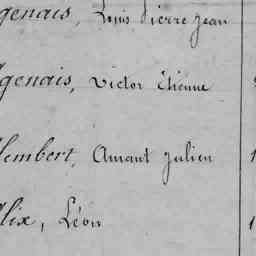 genais, Louis Pierre Jean
genais, Victor Etienne
lembert, Amant Julien
lix, Léon